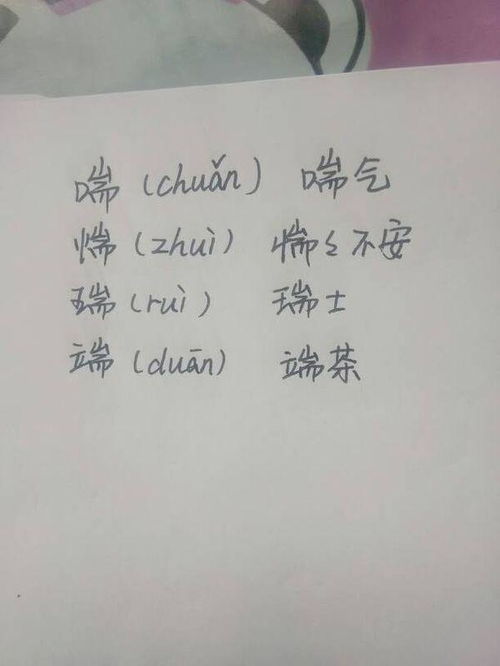 喘(chuǎn) 喘气
惴(zhuì) 惴々不安
瑞(ruì) 瑞士
端(duān) 端茶